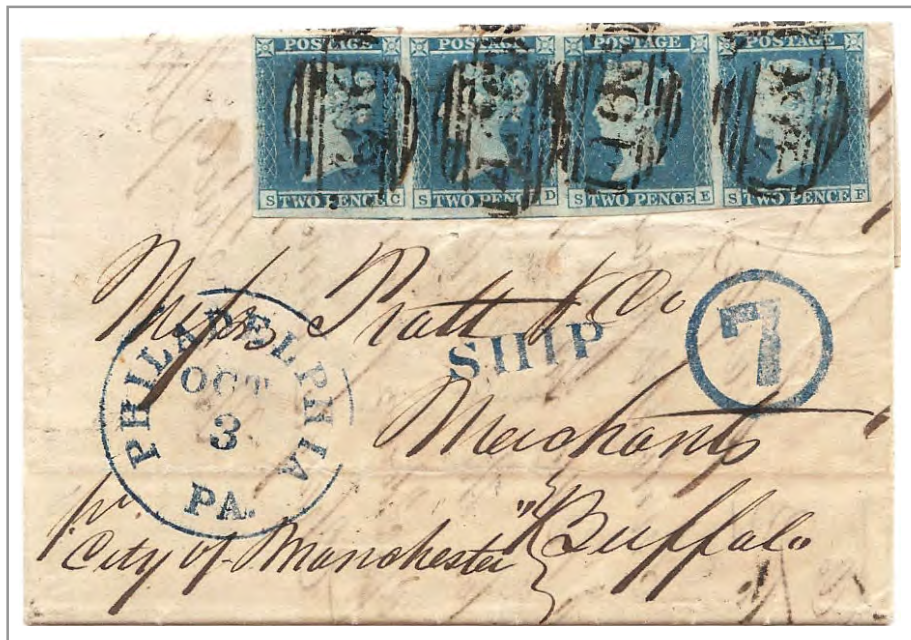 POSTAGE POSTAGE POSTAGE POSTAGE
S TWO PENCE C S TWO PENCE D S TWO PENCE E S TWO PENCE F
Messrs Pratt & Co
SHIP
7
PHILADELPHIA
OCT
3
PA.
Merchants
Buffalo
pr.
"City of Manchester"